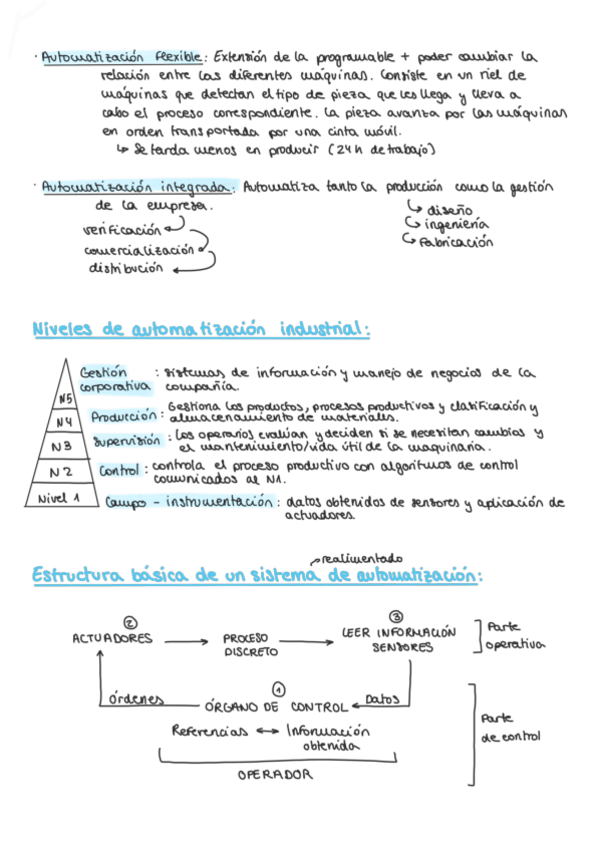 · Automatización flexible: Extensión de la programable + poder cambiar la
relación entre las diferentes máquinas. Consiste en un riel de
máquinas que detectan el tipo de pieza que les llega y lleva a
cabo el proceso correspondiente. La pieza avanza por las máquinas
en orden transportada por una cinta móvil.
↳ Se tarda menos en producir (24h de trabajo)
· Automatización integrada: Automatiza tanto la producción como la gestión
de la empresa.
verificación
comercialización
distribución
↳ diseño
↳ ingeniería
↳ Fabricación
Niveles de automatización industrial:
N5 Gestión corporativa : sistemas de información y manejo de negocios de la
compañía.
N4 Producción: Gestiona los productos, procesos productivos y clasificación y
almacenamiento de materiales.
N3 Supervisión: Los operarios evalúan y deciden si se necesitan cambios y
el mantenimiento/vida útil de la maquinaria.
N2 Control: controla el proceso productivo con algoritmos de control
comunicados al N1.
Nivel 1 Campo - instrumentación: datos obtenidos de sensores y aplicación de
actuadores.
realimentado
Estructura básica de un sistema de automatización:
② ACTUADORES → PROCESO DISCRETO → ③ LEER INFORMACIÓN SENSORES
Parte
operativa
Órdenes
① ÓRGANO DE CONTROL
Datos
Referencias ↔ Información
obtenida
OPERADOR
Parte
de control